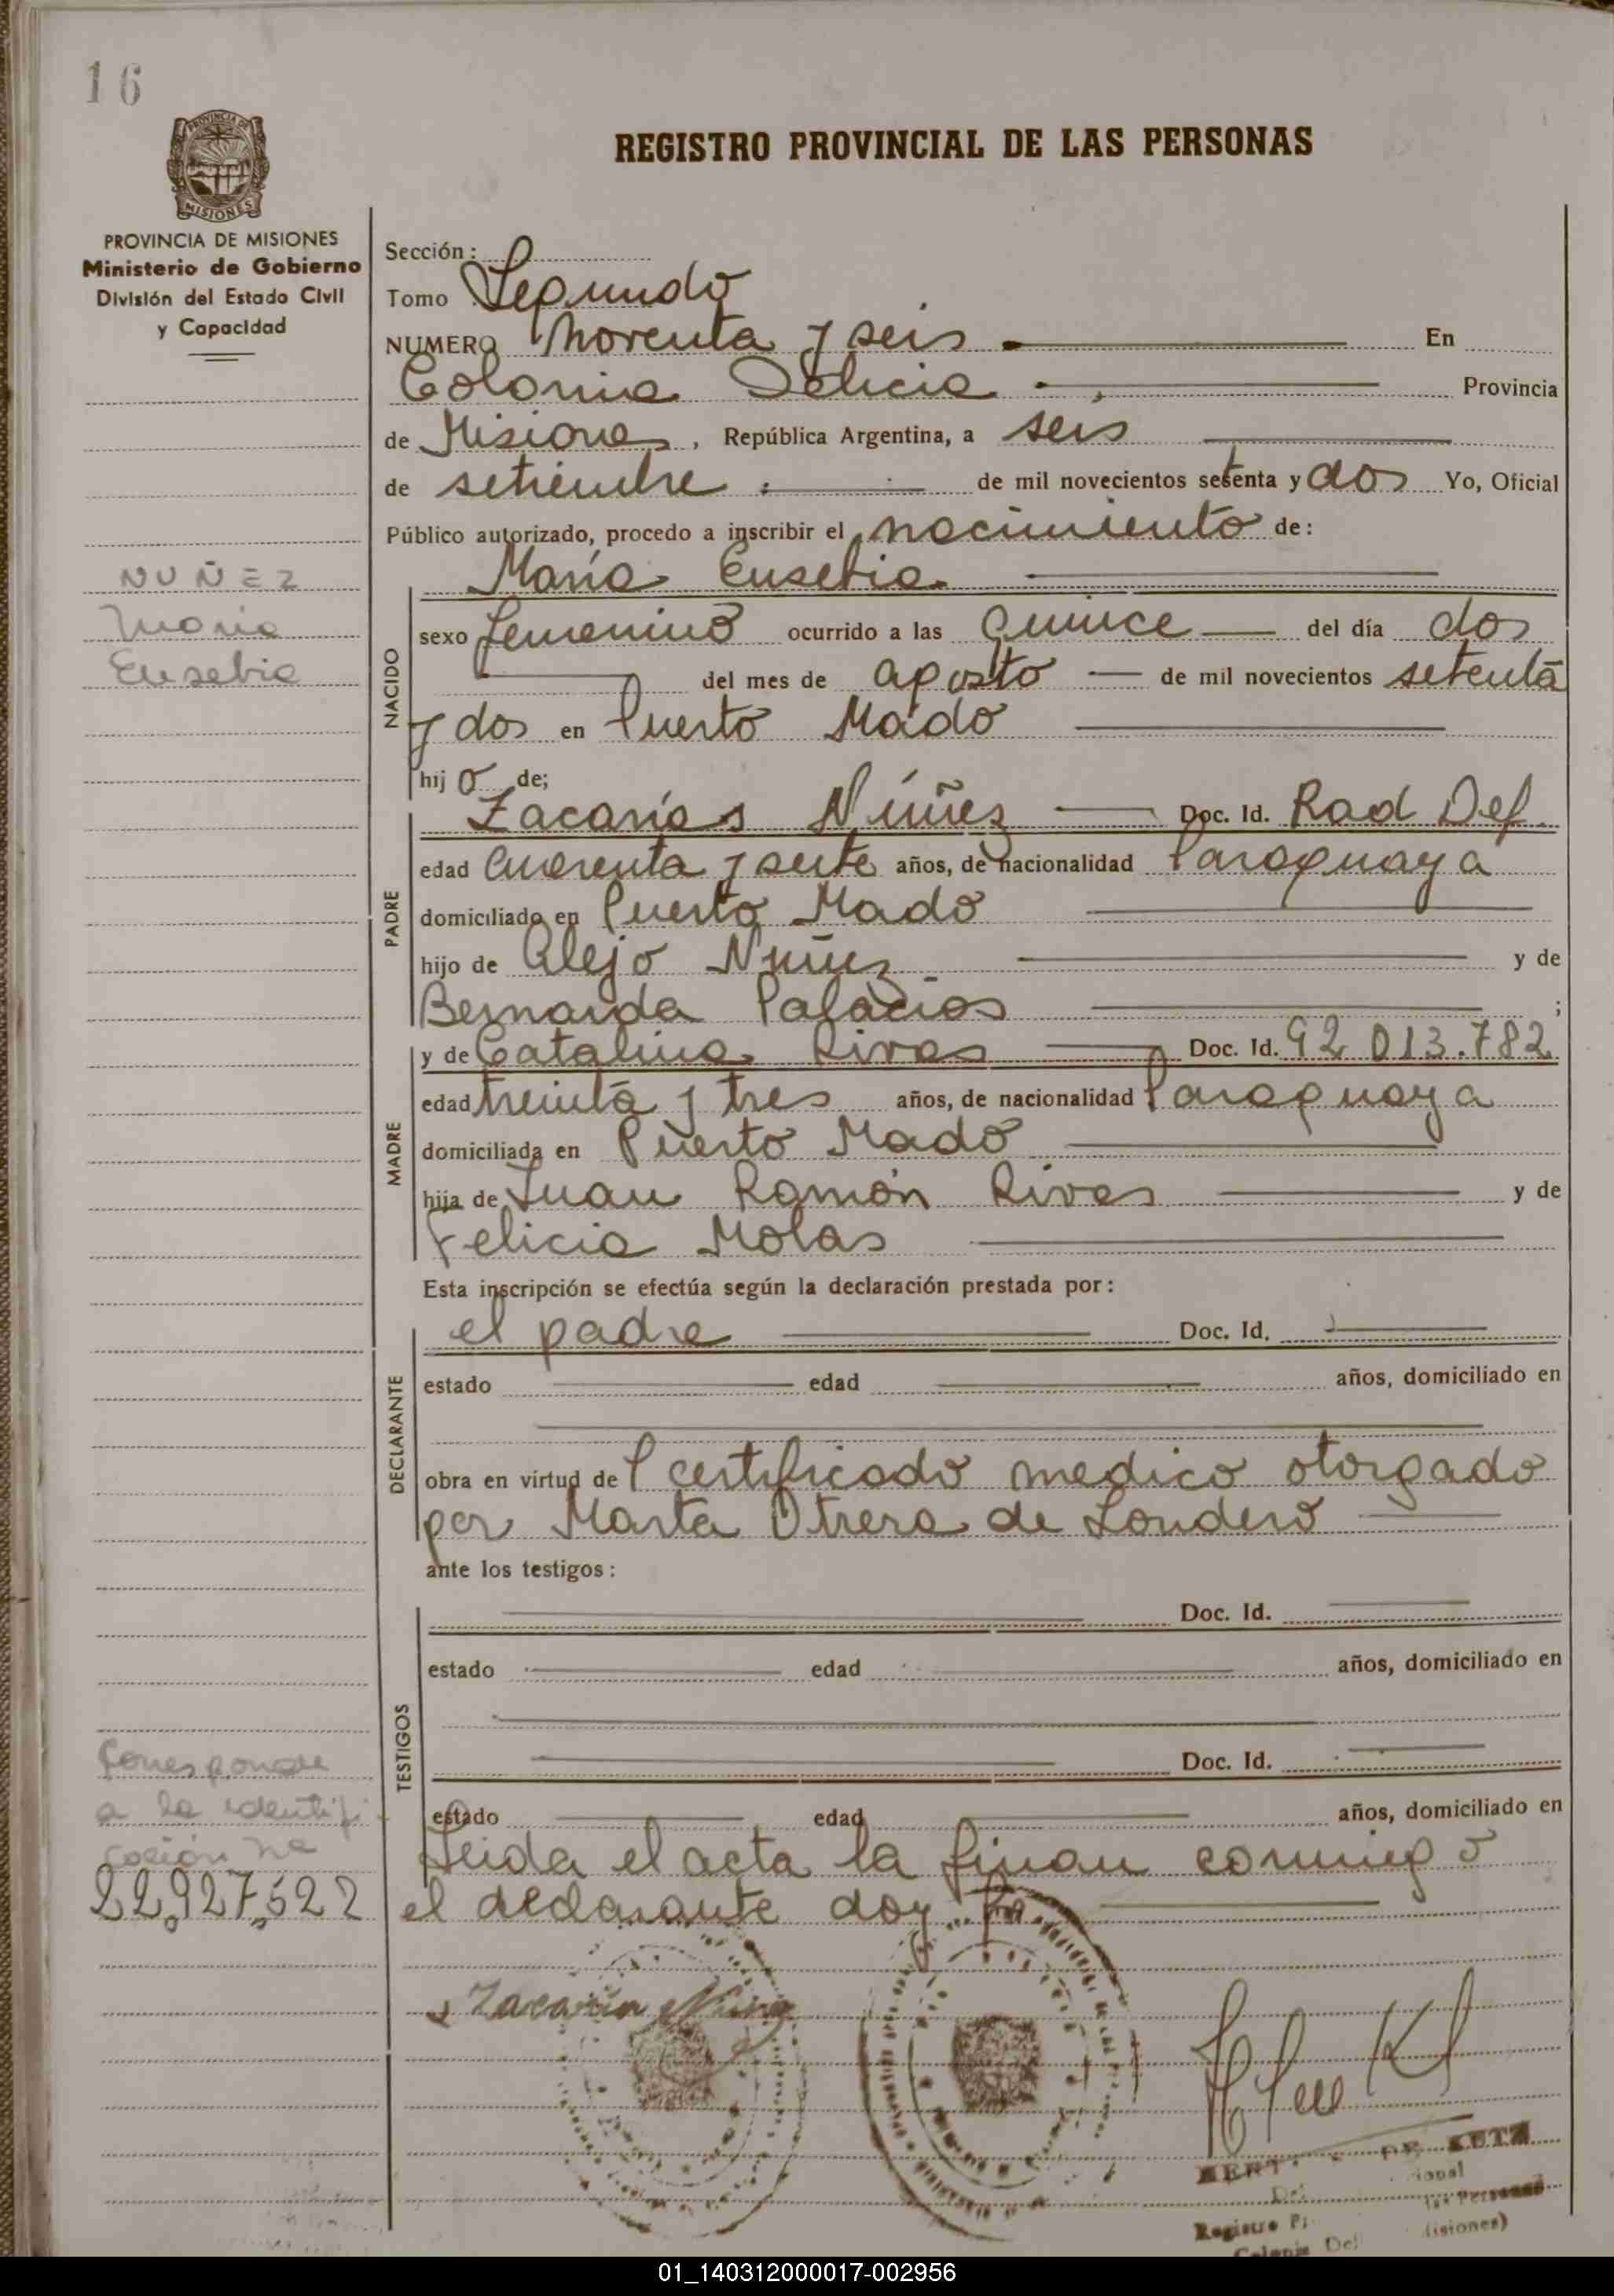 16
PROVINCIA DE
MISIONES
REGISTRO PROVINCIAL DE LAS PERSONAS
PROVINCIA DE MISIONES
Ministerio de Gobierno
División del Estado Civil
y Capacidad
Sección:
Tomo Segundo
NUMERO Noventa y seis En
Colonia Delicia Provincia
de Misiones, República Argentina, a seis
de setiembre de mil novecientos setenta y dos Yo, Oficial
Público autorizado, procedo a inscribir el nacimiento de:
María Eusebia
NUÑEZ
Maria
Eusebia
NACIDO
sexo femenino ocurrido a las quince del día dos
del mes de agosto de mil novecientos setenta
y dos en Puerto Mado
hij o de;
PADRE
Zacarías Núñez Doc. Id. Rad Def.
edad cuarenta y siete años, de nacionalidad Paraguaya
domiciliado en Puerto Mado
hijo de Alejo Nuñez y de
Bernarda Palacios ;
MADRE
y de Catalina Rivas Doc. Id. 92 013.782
edad treinta y tres años, de nacionalidad Paraguaya
domiciliada en Puerto Mado
hija de Juan Ramón Rivas y de
Felicia Molas
Esta inscripción se efectúa según la declaración prestada por:
DECLARANTE
el padre Doc. Id.
estado edad años, domiciliado en
obra en virtud de l certificado medico otorgado
por Marta Otrera de Londero
ante los testigos:
TESTIGOS
Doc. Id.
estado edad años, domiciliado en
Doc. Id.
estado edad años, domiciliado en
Corresponde
a la identifi
cación na
22.927.522
Leida el acta la firman conmigo
el declarante doy fe.
Zacarías Núñez
DE KUTZ
Registro
Colonia Del
01_140312000017-002956